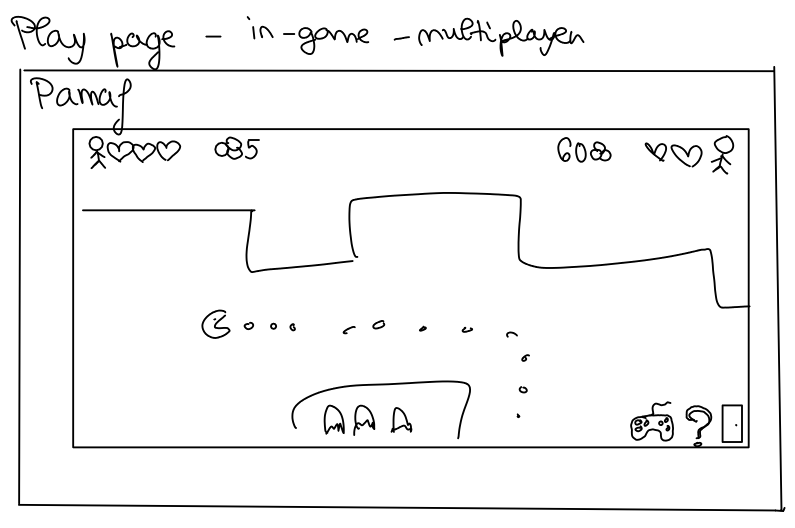 Play page - in-game - multiplayer
Pamaf
85 60
?